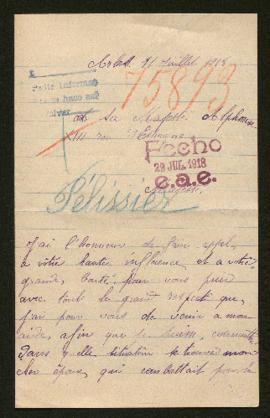 Juillet 1918
75893
a sa Majesté Alphonse
XIII roi d'Espagne
Fecho
29 JUL. 1918
e.a.e.
Pélissier
J'ai l'honneur de faire appel
à votre haute influence et a votre
grande bonté pour vous prier
avec tout le grand respect que
j'ai pour vous de venir a mon
aide, afin que je puisse connaitre
dans quelle situation se trouve mon
cher époux, qui combattait pour la